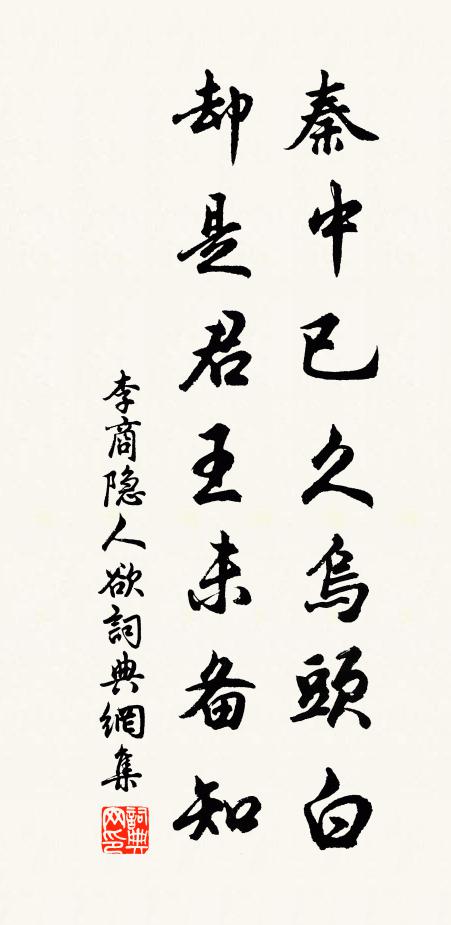 秦中已久烏頭白
却是君王未备知
李商隐人欲詞典網集
詞典網印